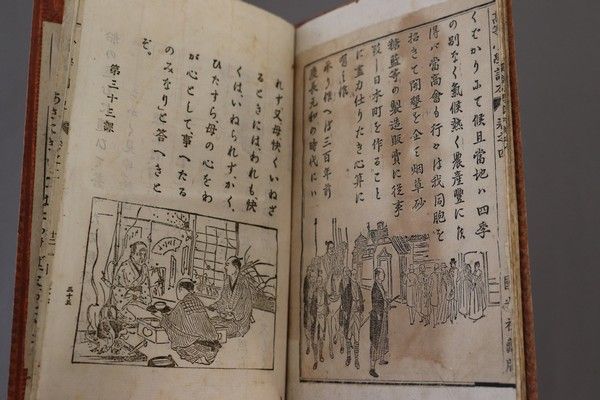 の別なく氣候熱く農産豐に候
得ハ當商會も行々ハ我同胞を
招きて開墾を企て烟草砂
糖藍等の製造販賣に従事
致し日本町を作ること
に盡力仕りたき心算に
有之候
承り候へば三百年前
慶長元和の時代にハ
れず又母快くいねざ
るときには、われも快
くはいねられずかく、
ひたすら母の心をわ
が心として事へたる
のみなり」と答へきと
ぞ。
第三十三課
三十五